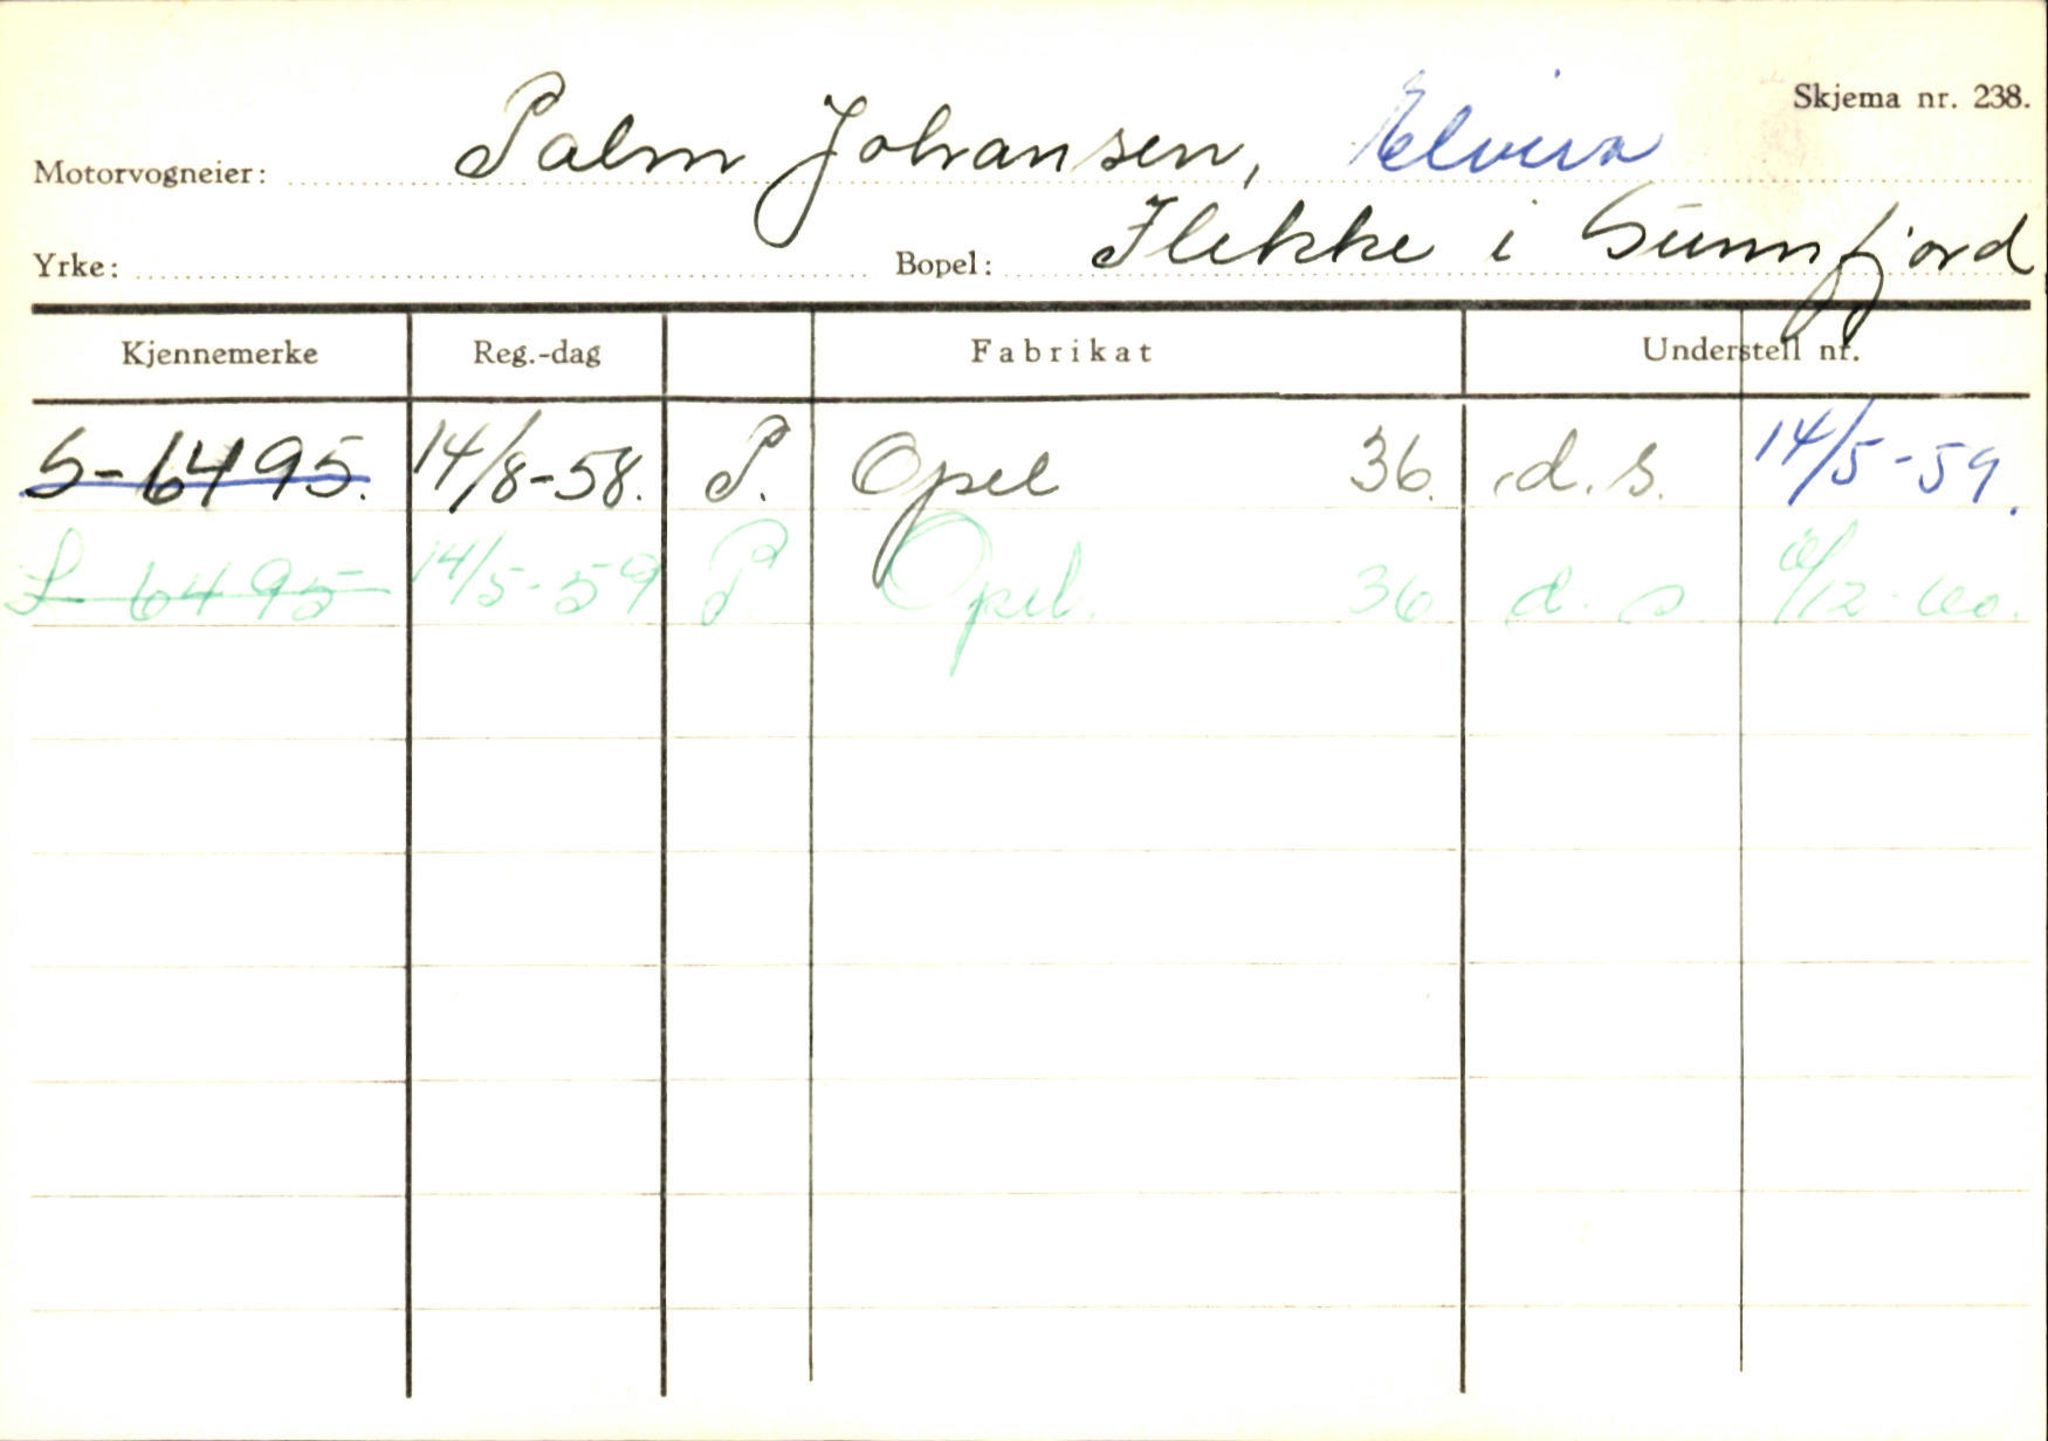 Skjema nr. 238.
Motorvogneier: Palm Johansen, Elvira
Yrke: Bopel: Flekke i Sunnfjord
Kjennemerke Reg.-dag Fabrikat Understell nr.
S-6495. 14/8-58. P. Opel 36. d.s. 14/5-59.
S 6495 14/5-59 P. Opel. 36 d.s